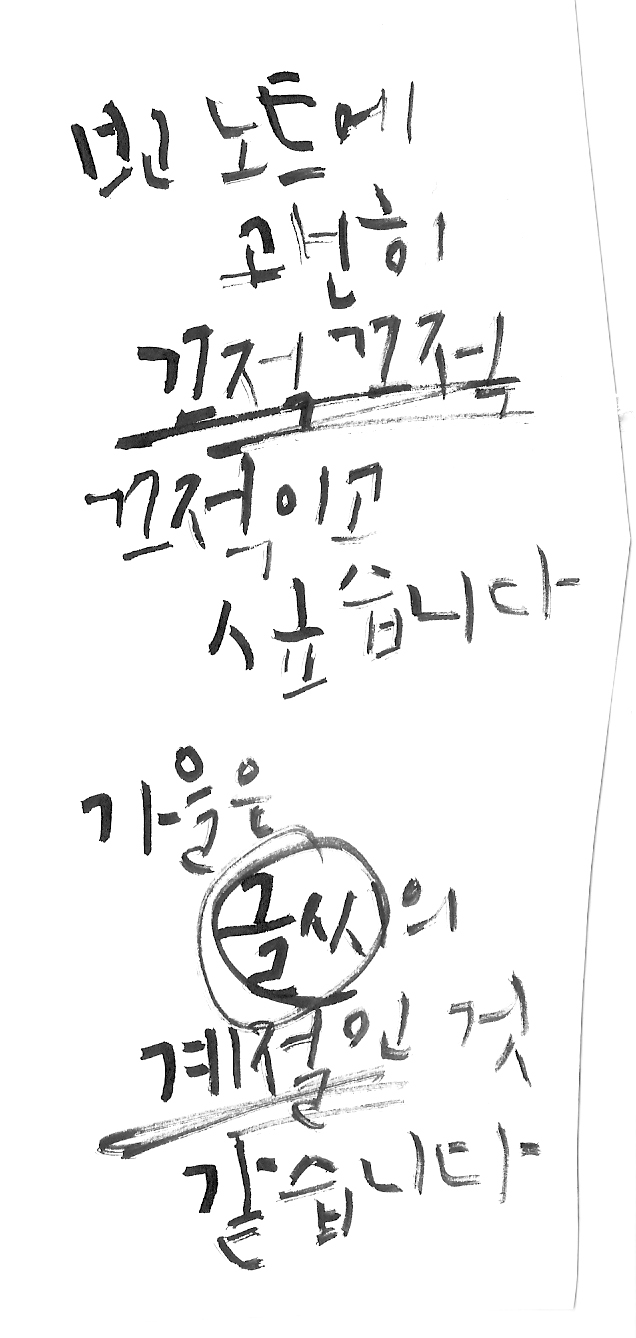 빈 노트에
괜히
끄적끄적
끄적이고
싶습니다
가을은
글씨의
계절인 것
같습니다